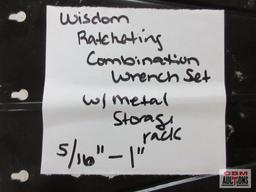 Wisdom
Ratcheting
Combination
Wrench Set
w/ metal
Storage
rack
5/16" - 1"
CBM
AUCTIONS